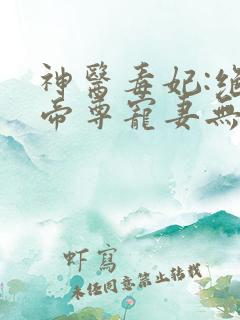 神醫毒妃:絕
帝尊寵妻無
虾寫
未经同意禁止转载